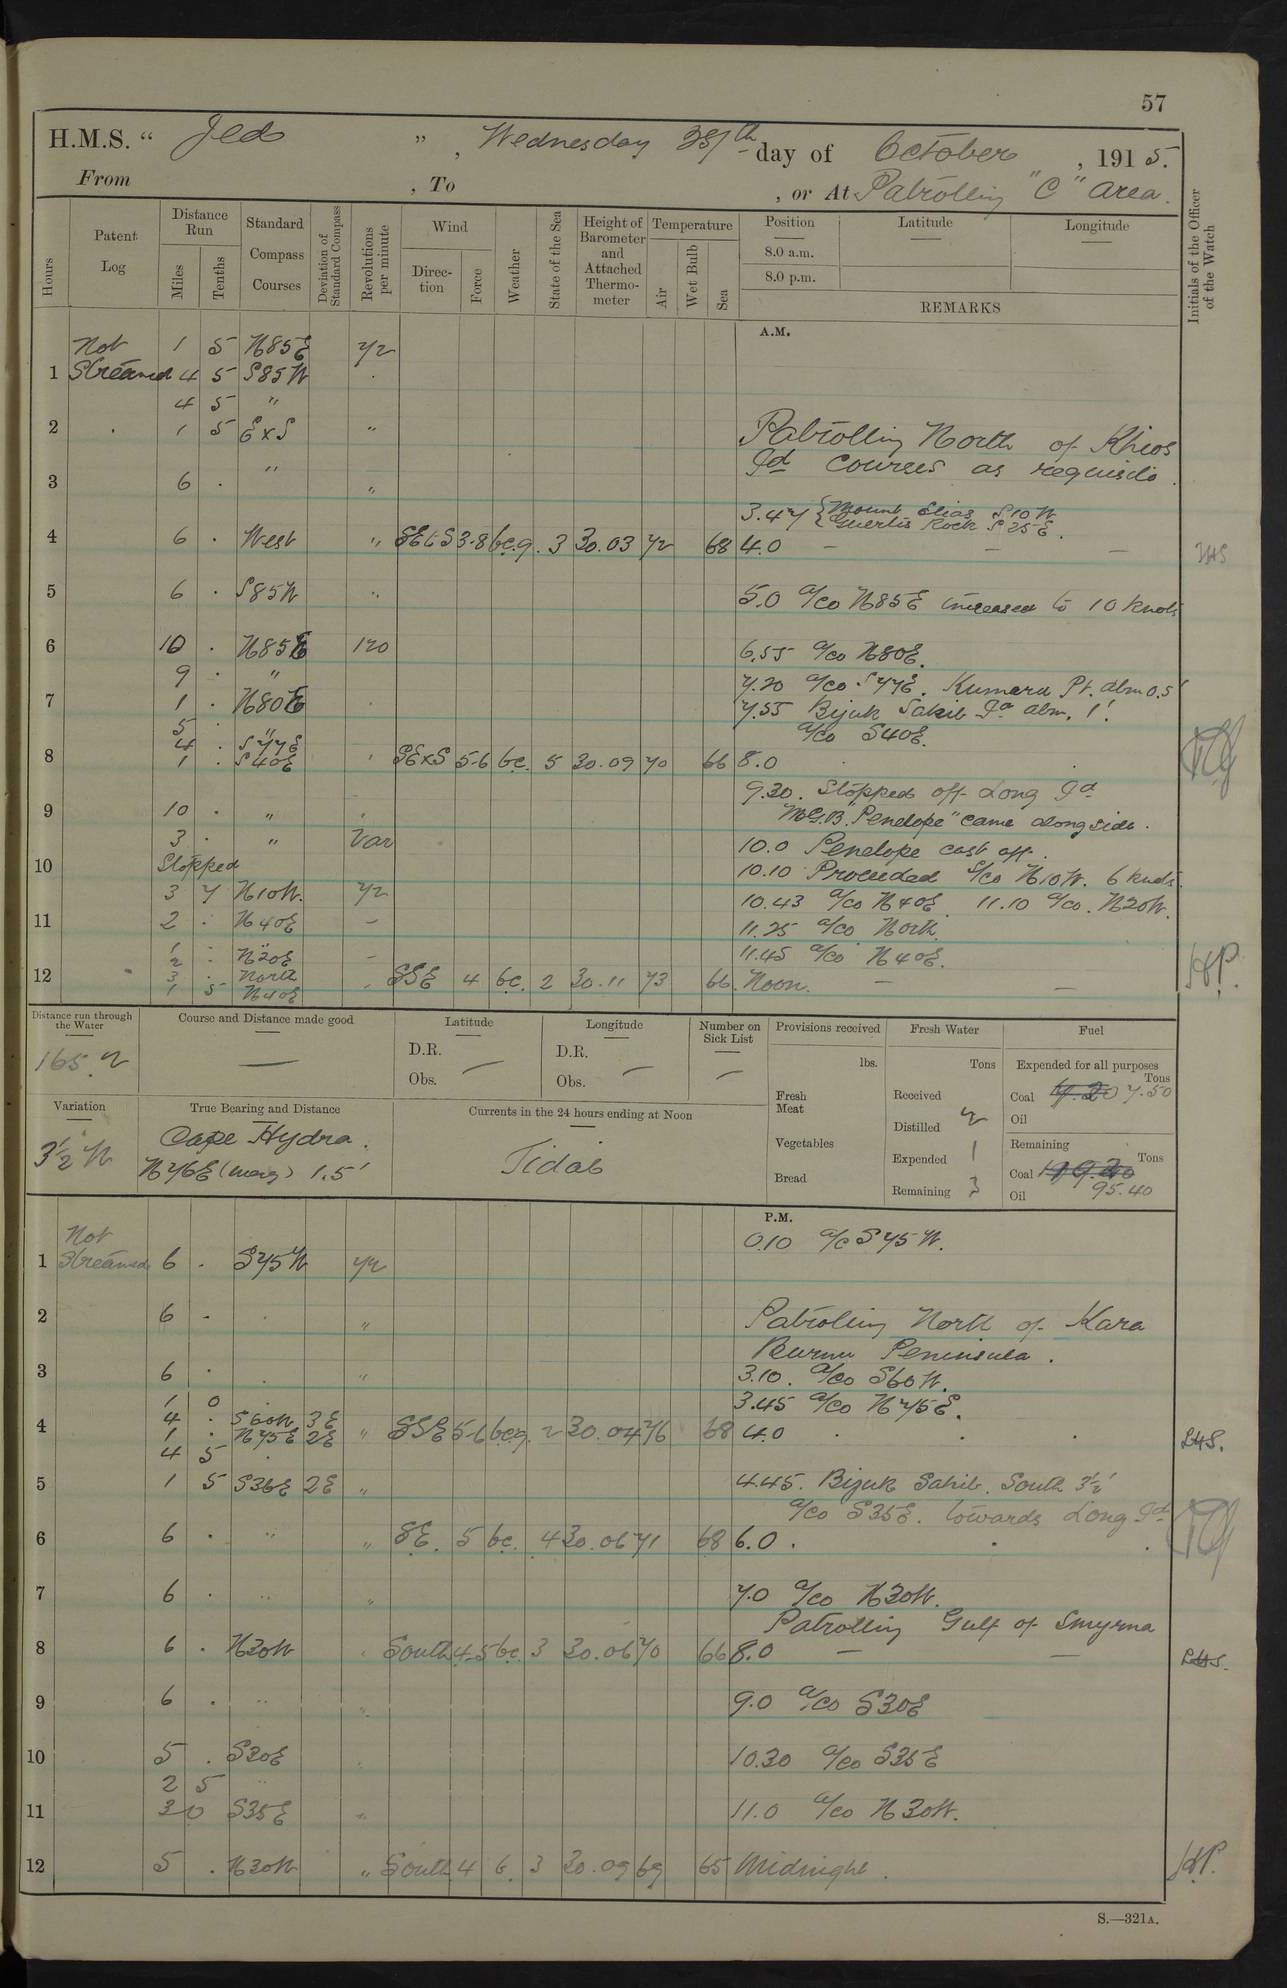 57
H.M.S. “ Jed ” , Wednesday day of October , 1915.
From , To , or At Patrolling "C" area.
Hours
Patent Log
Distance Run
Miles
Tenths
Standard Compass Courses
Deviation of Standard Compass
Revolutions per minute
Wind
Direction
Force
Weather
State of the Sea
Height of Barometer and Attached Thermometer
Temperature
Air
Wet Bulb
Sea
Position Latitude Longitude
8.0 a.m.
8.0 p.m.
REMARKS
Initials of the Officer of the Watch
A.M.
Not 1 5 N85E 72
1 Streamed 4 5 S85W
4 5 "
2 1 5 ExS " Patrolling North of Khios
" Id Courses as requisite.
3 6 . "
3.47 { Mount Elias S10W
Rock S25E.
4 6 . West " 3 30.03 72 68 4.0 — — —
5 6 . S85W " 5.0 a/co N85E increased to 10 knots
6 10 . N85E 120 6.55 a/co N80E.
9 . " 7.20 a/co S77E. Kumaru Pt. abm 0.5'
7 1 . N80E 7.55 Bijuk Sahib Id abm. 1'.
5 " a/co S40E.
4 . S77E
8 1 . S40E SExS 5-6 bc. 5 30.09 70 66 8.0
9.30. Stopped off Long Id
9 10 . " M.G.B. "Penelope" came alongside.
3 . " Var 10.0 Penelope cast off.
10 Stopped 10.10 Proceeded S/co N10W. 6 knots.
3 7 N10W. 72 10.43 a/co N40E. 11.10 a/co. N20W.
11 2 . N40E — 11.25 a/co North.
1 . " 11.45 a/co N40E.
2 . N20E —
3 . North
12 1 5 N40E SSE 4 bc. 2 30.11 73 66 Noon. — —
Distance run through the Water
165.2
Course and Distance made good
—
Latitude
D.R.
Obs. —
Longitude
D.R.
Obs. —
Number on Sick List
—
Provisions received
lbs.
Fresh Meat
Vegetables
Bread
Fresh Water
Tons
Received
Distilled 2
Expended 1
Remaining 3
Fuel
Expended for all purposes
Tons
Coal 7.50
Oil
Remaining
Tons
Coal
Oil 95.40
Variation
3½ W
True Bearing and Distance
Cape Hydra.
N76E (mag) 1.5'
Currents in the 24 hours ending at Noon
Tidal
P.M.
Not 0.10 a/c S75W.
1 Streamed 6 . S75W 72
2 6 . " Patrolling North of Kara
Burnu Peninsula.
3 6 . " 3.10. a/co S60W.
1 0 3.45 a/co N75E.
4 . S60W 3E
4 1 . N75E 2E " SSE 5-6 bcq. 2 30.04 76 68 4.0 . . .
4 5 .
5 1 5 S36E 2E " 4.45. Bijuk Sahib. South 3½'
a/co S35E. towards Long Id
6 6 . " " SE. 5 bc. 4 30.06 71 68 6.0 . . .
7 6 . " " 7.0 a/co N30W.
Patrolling Gulf of Smyrna
8 6 . N30W South 4.5 bc. 3 30.06 70 66 8.0 — —
9 6 . " " 9.0 a/co S30E
10 5 . S30E 10.30 a/co S35E
2 5 "
11 3 0 S35E " 11.0 a/co N30W.
12 5 . N30W " South 4 b 3 30.09 69 65 Midnight.
S.—321A.